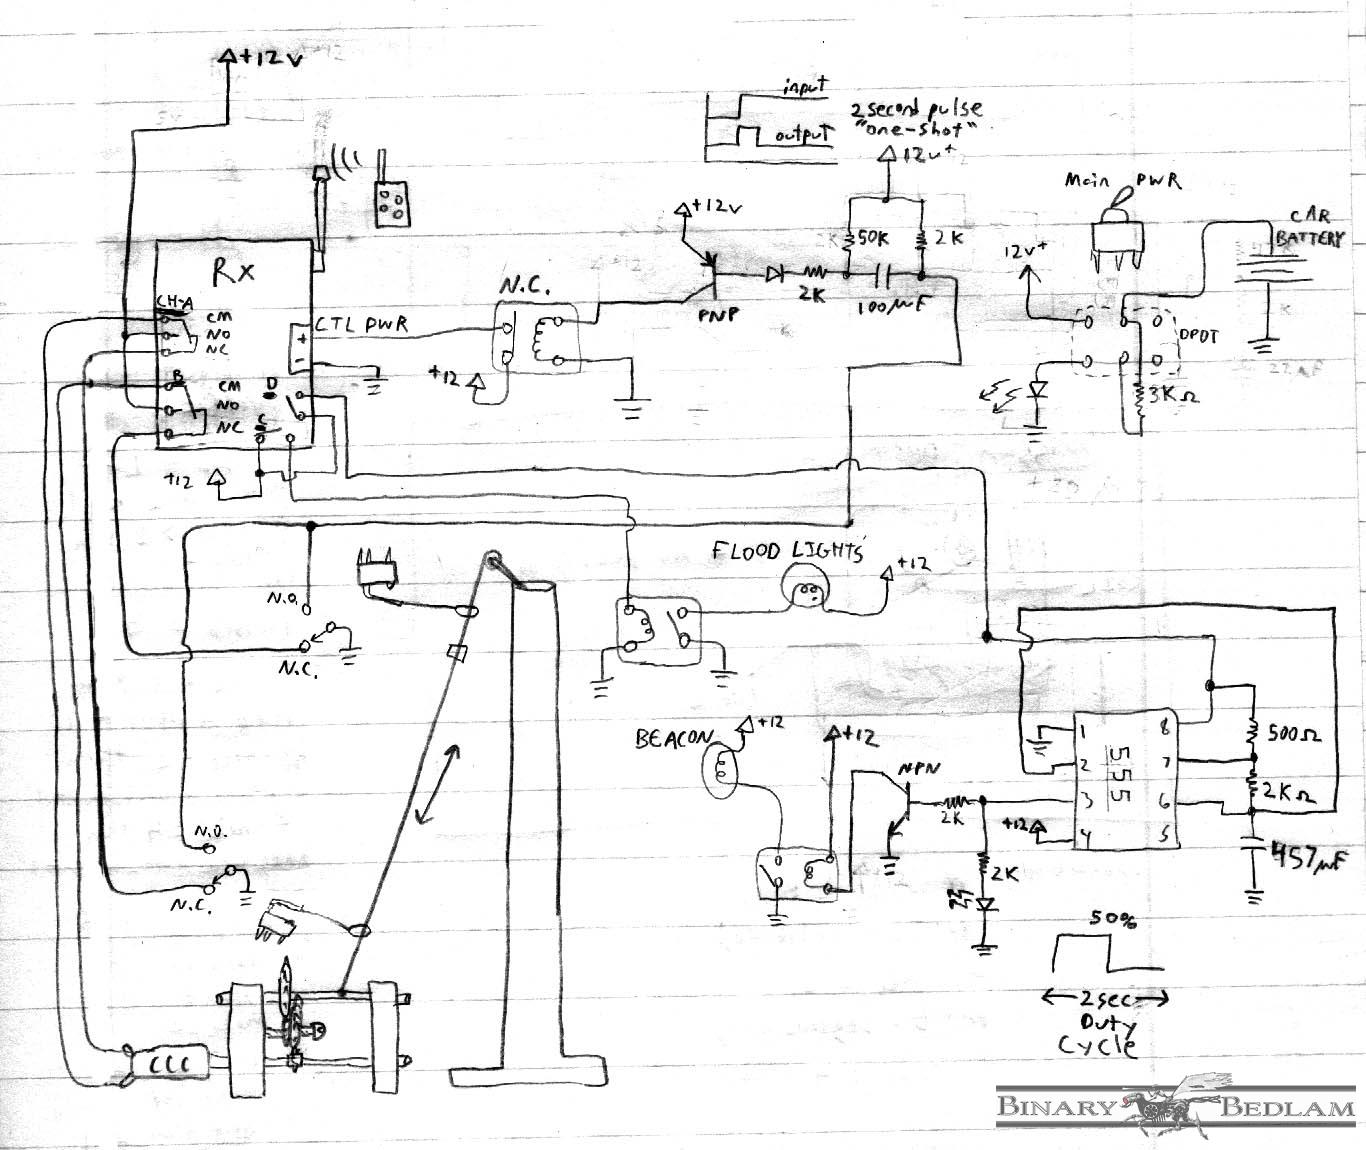 +12v
input
output
2 second pulse
"one-shot"
12v+
Main PWR
CAR
BATTERY
12v+
DPDT
3KΩ
+12v
50K
2K
2K
100µF
PNP
N.C.
CTL PWR
+12
Rx
CH-A
CM
NO
NC
B
CM
NO
NC
D
C
+
-
+12
FLOOD LIGHTS
+12
N.O.
N.C.
BEACON
+12
+12
NPN
2K
2K
+12
1
2
3
4
555
8
7
6
5
500Ω
2KΩ
457µF
N.O.
N.C.
50%
2sec
Duty
Cycle
BINARY BEDLAM